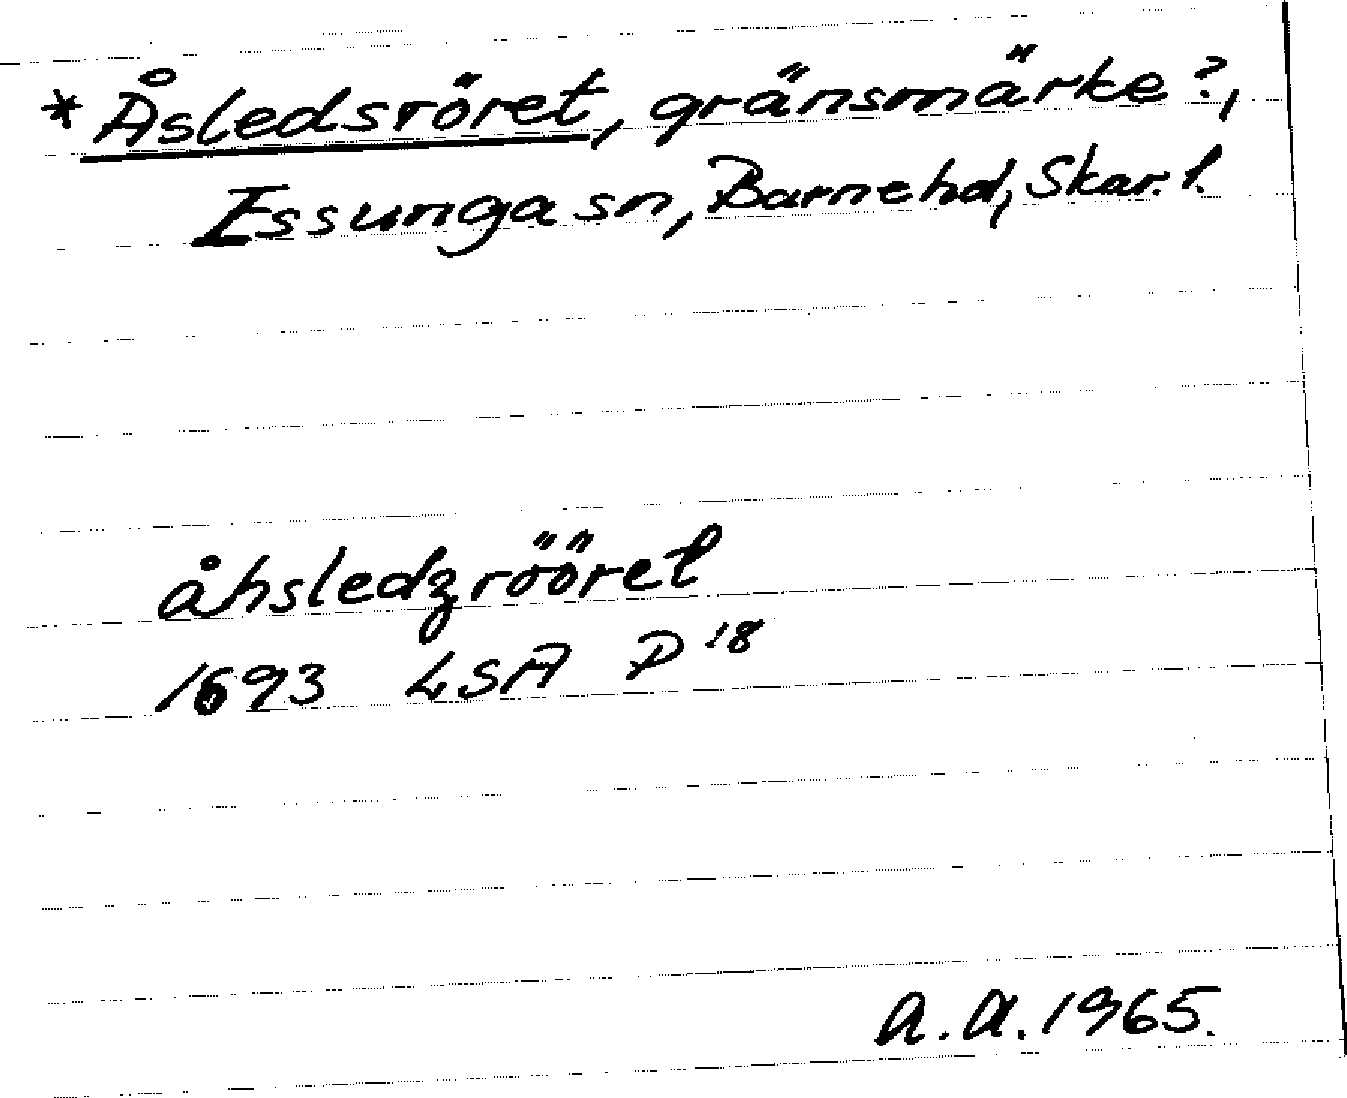 * Åsledsröret, gränsmärke?,
Essunga sn, Barne hd, Skar. l.
åhsledzrööret
1693 LSA P 18
A.A. 1965.